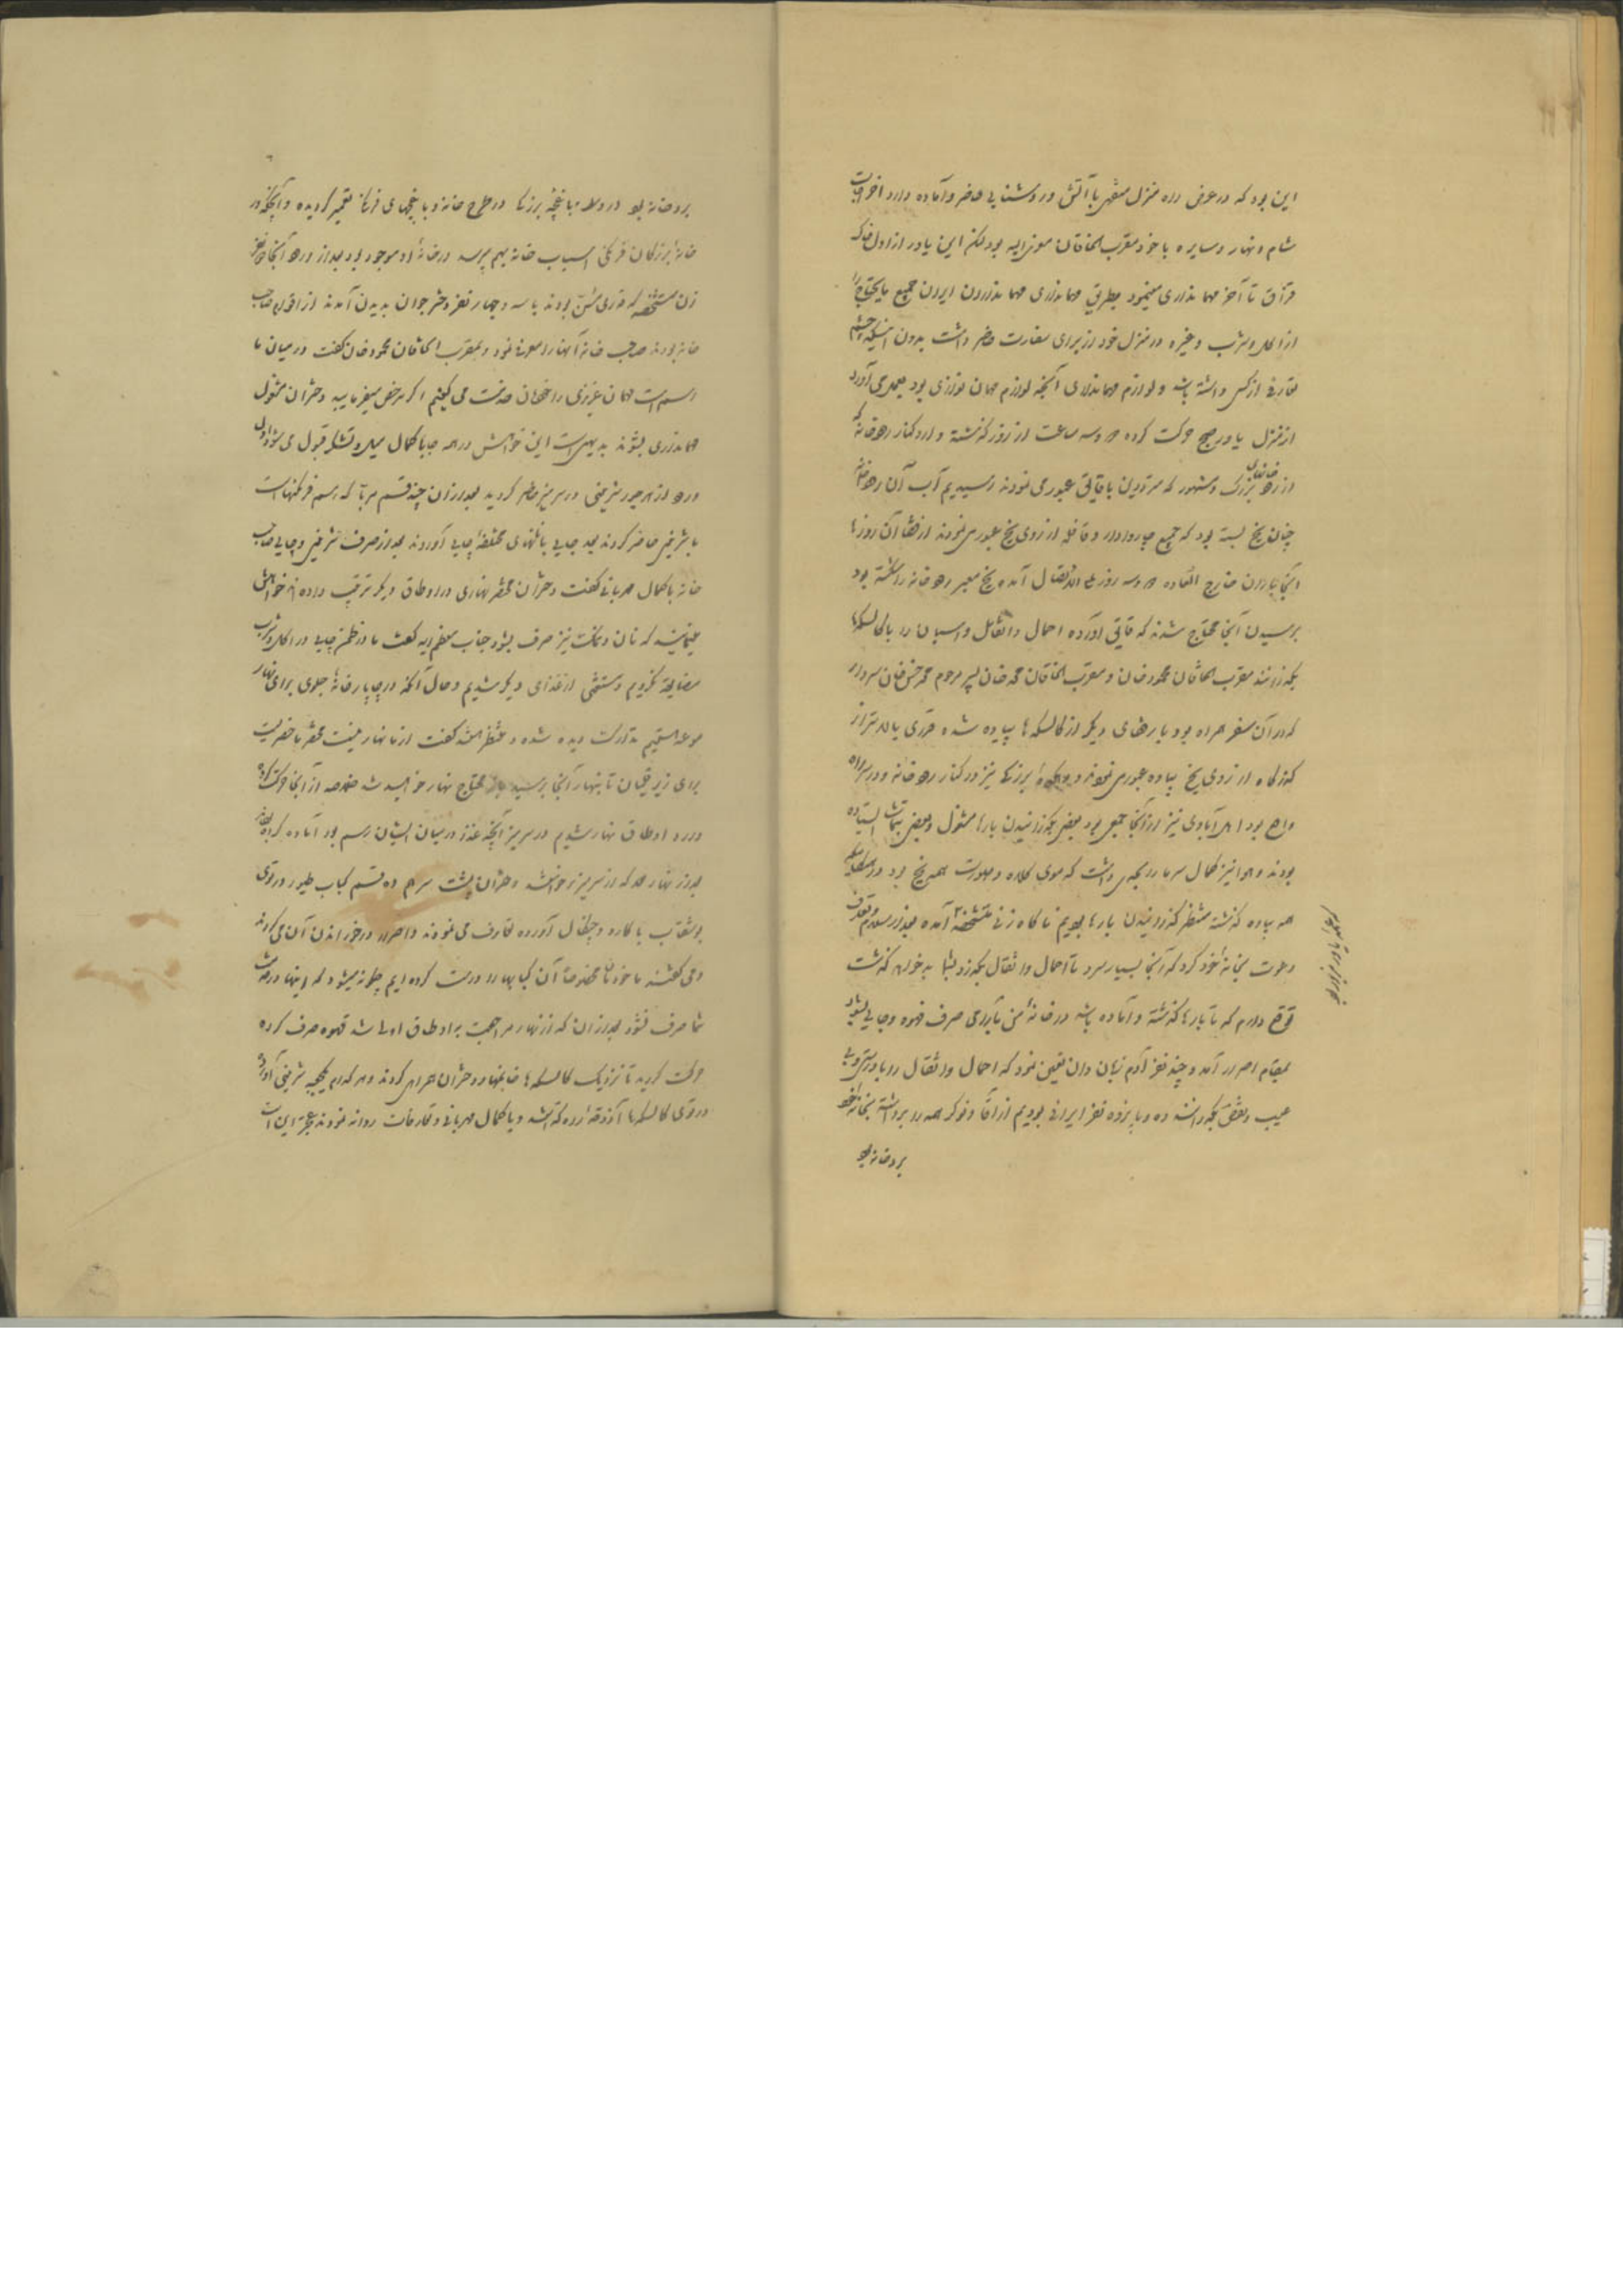 این بود که در عرض راه منزل سفری با آتش و روشنایی حاضر و آماده دارد اخراجات
شام و نهار و سایره با خود مقرب الخاقان معزی الیه بود لکن این یاور از اول خاک
قزاق تا آخر مهمانداری مینمود بطریق مهمانداری مهمانداران ایران جمیع مایحتاج را
از اکل و شرب و غیره در منزل خود از برای سفارت حاضر داشت بدون اینکه چشم
تعارفی از کسی داشته باشد و لوازم مهمانداری آنچه لوازم مهمان نوازی بود بعمل می آورد
از منزل یاور صبح حرکت کرده دو سه ساعت از روز گذشته وارد کنار رودخانه که
از رودخانهای بزرگ و مشهور که مترددین با قایق عبور می نمودند رسیدیم آب آن رودخانه
چنان یخ بسته بود که جمیع چاروادار و قافله از روی یخ عبور می نمودند از قضا آن روزها
آنجا باران خارج العاده دو سه روز علی الاتصال آمده یخ معبر رودخانه را شکسته بود
برسیدن آنجا محتاج شدند که قایق آورده احمال و اثقال و اسبان را با کالسکها
بگذرانند مقرب الخاقان محمود خان و مقرب الخاقان محمد خان پسر مرحوم محمد حسن خان سردار
که در آن سفر همراه بود با رفقای دیگر از کالسکه ها پیاده شده قدری بالاتر از
گذرگاه از روی یخ پیاده عبور می نمودند و یک ده بزرگ نیز در کنار رودخانه و در سر راه
واقع بود اهل آبادی نیز در آنجا جمعی بود بعضی بگذرانیدن بارها مشغول و بعضی بتماشا ایستاده
بودند و هوا نیز کمال سرما را بحدی داشت که موی کلاه و صورت همه یخ بود در هنگامیکه
همه پیاده گذشته منتظر گذرانیدن بارها بودیم ناگاه زنی متشخصه آمده بعد از سلام و تعارف
دعوت بخانه خود کرد که آنجا بسیار سرد تا احمال و اثقال بگذرد بشما بد خواهد گذشت
توقع دارم که تا بارها گذشته و آماده باشد در خانه من تا برای صرف قهوه و چایی بشود
بمقام اصرار آمد و چند نفر آدم زبان دان تعیین نمود که احمال و اثقال را با درستی و بی
عیب و نقص بگذرانند ده و پانزده نفر ایرانی بودیم از آقا و نوکر همه را برداشته بخانه خود
برد خانه بود
برد خانه بود در ولایت باغچه بزرگ در طرح خانه و باغچهای فرنگ تعمیر گردیده و آنچه در
خانه بزرگان فرنگی اسباب خانه بهم برسد در خانه او موجود بود بعد از ورود آنجا چند نفر
زن متشخصه که قدری مسن بودند با سه و چهار نفر دختر جوان بدیدن آمدند از اقوام صاحب
خانه بودند صاحب خانه آنها را معرفی نمود و بمقرب الخاقان محمود خان گفت در میان ما
رسم است مهمان عزیزی را دختران خدمت می کنیم اگر مرخص میفرمایید دختران مشغول
مهمانداری بشوند بدیهی است این خواهش در همه جا با کمال میل و تشکر قبول می شود اول
ورود از هر جور شیرینی در سر میز حاضر گردید بعد از آن چند قسم مربا که رسم فرنگیهاست
با شیرینی حاضر کردند بعد چایی با نانهای مختلفه چایی آوردند بعد از صرف شیرینی و چایی صاحب
خانه با کمال مهربانی گفت دختران محضر نهاری در اوطاق دیگر ترتیب داده اند خواهش
مینمایند که نان و نمک نیز صرف بشود جناب معظم الیه گفت ما در نظم چایی در اکل و شرب
مضایقه نکردیم و مستغنی از غذای دیگر شدیم و حال آنکه در چاپارخانه جلوی برای نهار
موعد هستیم تدارک دیده شده و منتظر هستند گفت از ما نهار نیست محضر ماحضریست
برای زیر قلیان تا بنهار آنجا برسید باز محتاج نهار خواهید شد خلاصه از آنجا حرکت کرده
وارد اوطاق نهار شدیم در سر میز آنچه غذا در میان ایشان رسم بود آماده کرده بودند
بعد از نهار همه که از سر میز برخواستند دختران پشت سر هم ده قسم کباب طیور در توی
بوشقاب با کارد و چنگال آورده تعارف می نمودند و اصرار در خوراندن آن می کردند
و می گفتند ما خودمان مخصوصا آن کبابها را درست کرده ایم چگونه میشود که اینها در خدمت
شما صرف نشود بعد از آن که از نهار مراجعت به اوطاق اولی شد قهوه صرف کرده
حرکت کردید تا نزدیک کالسکه ها خانمها و دختران همراهی کردند و هر کدام یکجعبه شیرینی آورده
در توی کالسکه ها آذوقه راه گذاشتند و با کمال مهربانی و تعارفات روانه نمودند